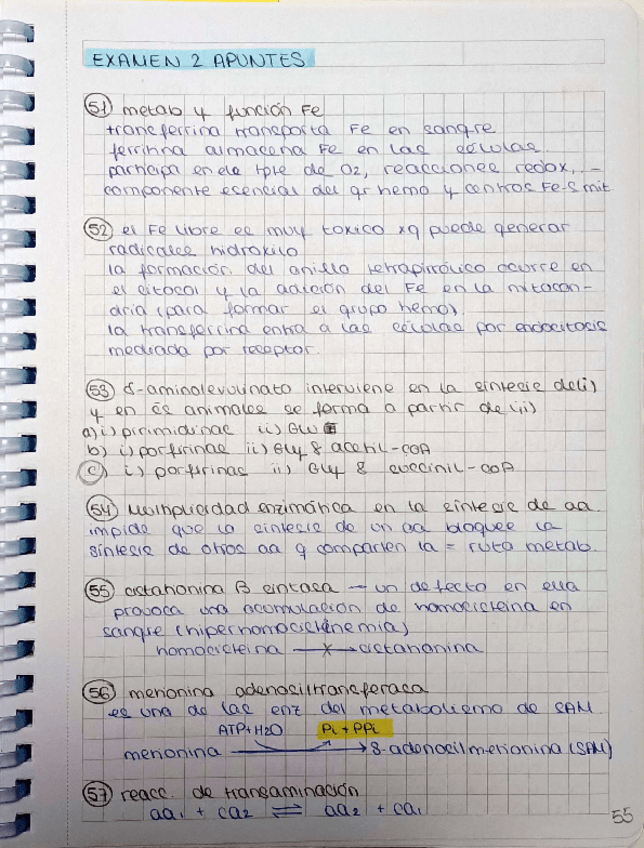 EXAMEN 2 APUNTES
51 metab y función Fe
transferrina transporta Fe en sangre
ferritina almacena Fe en las células.
participa en ele tpte de O2, reacciones redox, -
componente esencial del gr hemo y centros Fe-S mit
52 el Fe libre es muy toxico xq puede generar
radicales hidroxilo
la formación del anillo tetrapirrólico ocurre en
el citosol y la adición del Fe en la mitocon-
dria (para formar el grupo hemo).
la transferrina entra a las células por endocitosis
mediada por receptor.
53 δ-aminolevulinato interviene en la sintesis de(i)
y en és animales se forma a partir de (ii)
a) i) pirimidinas ii) GLU
b) i) porfirinas ii) Gly & acetil-COA
c) i) porfirinas ii) Gly & succinil-COA
54 Multiplicidad enzimática en la síntesis de aa.
impide que la sintesis de un aa bloquee la
síntesis de otros aa q comparten la = ruta metab.
55 cistationina β sintasa - un defecto en ella
provoca una acumulación de homocisteina en
sangre (hiperhomocisteinemia)
homocisteina -x→ cistationina
56 metionina adenosiltransferasa
es una de las enz del metabolismo de SAM
ATP+H2O Pi + PPi
metionina → S-adenosilmetionina (SAM)
57 reacc. de transaminación
aa1 + ca2 ⇌ aa2 + ca1
55